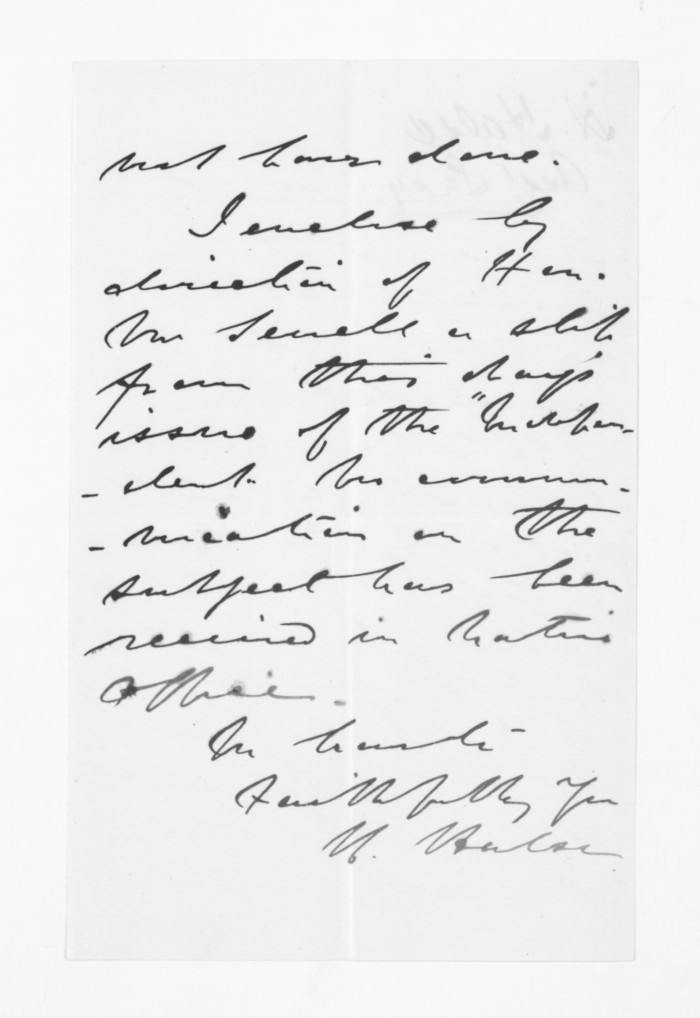 not have done.
I enclose by
direction of Hon.
Mr Sewell a slip
from this day's
issue of the "Indepen-
-dent. No commu-
-nication on the
subject has been
received in Native
Office.
In haste
Faithfully Yrs
H. Halse